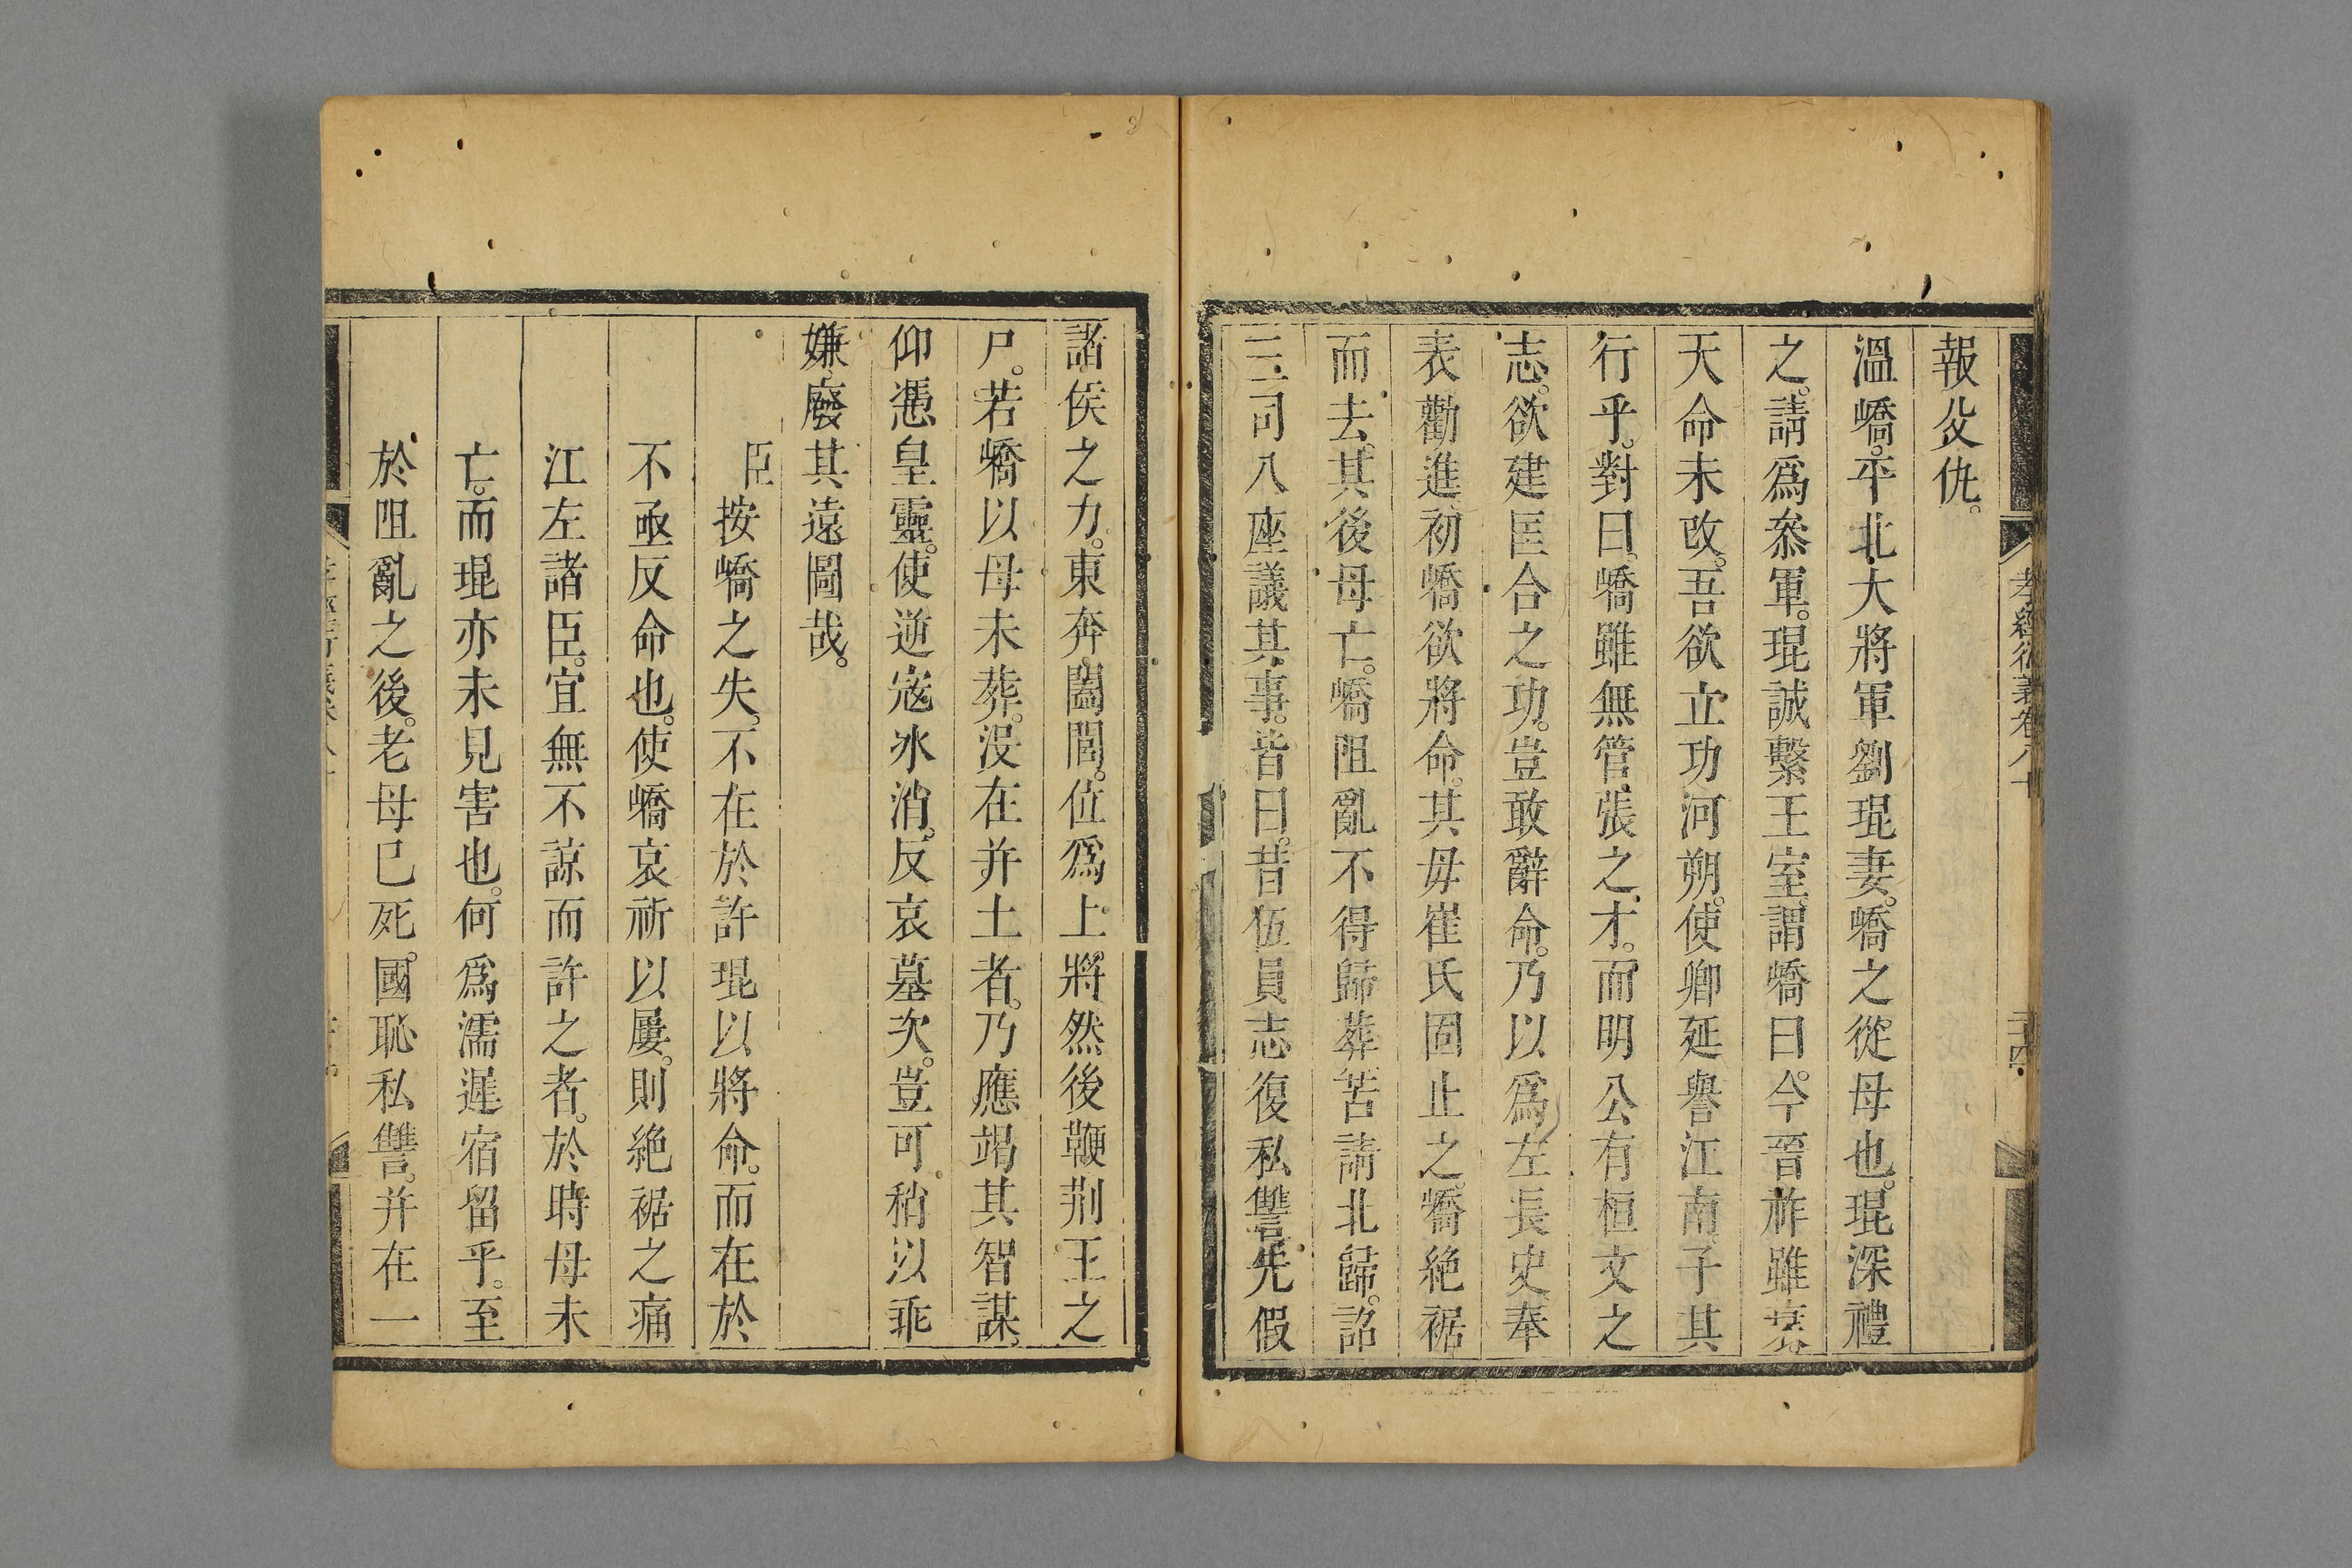 孝經衍義卷八十
二十四
報父仇。
溫嶠。平北大將軍劉琨妻。嶠之從母也。琨深禮
之。請爲叅軍。琨誠繫王室。謂嶠曰。今晉祚雖衰。
天命未改。吾欲立功河朔。使卿延譽江南。子其
行乎。對曰。嶠雖無管張之才。而明公有桓文之
志。欲建匡合之功。豈敢辭命。乃以爲左長史。奉
表勸進。初嶠欲將命。其母崔氏固止之。嶠絶裾
而去。其後母亡。嶠阻亂不得歸葬。苦請北歸。詔
三司八座議其事。皆曰。昔伍員志復私讐。先假
諸侯之力。東奔闔閭。位爲上將。然後鞭荆王之
尸。若嶠以母未葬。沒在并土者。乃應竭其智謀。
仰憑皇靈。使逆寇氷消。反哀墓次。豈可稍以乖
嫌。廢其遠圖哉。
臣按嶠之失。不在於許琨以將命。而在於
不亟反命也。使嶠哀祈以屢。則絶裾之痛
江左諸臣。宜無不諒而許之者。於時母未
亡。而琨亦未見害也。何爲濡遲宿留乎。至
於阻亂之後。老母已死。國恥私讐。并在一